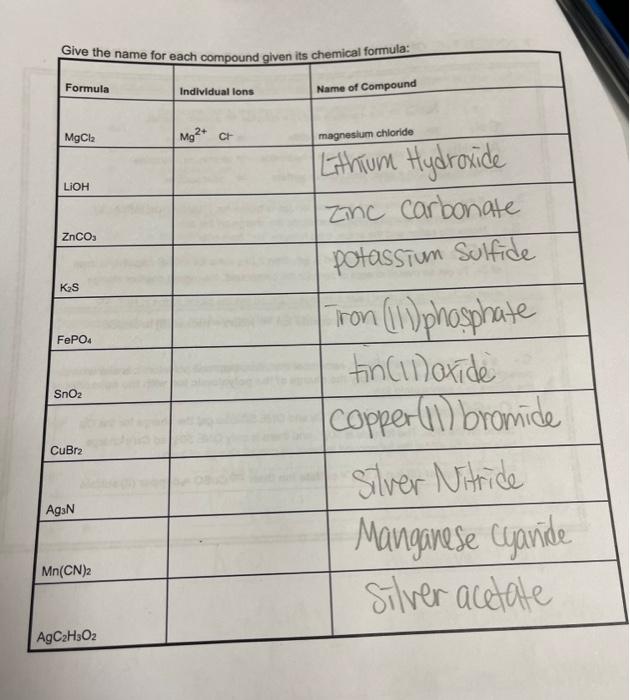 Give the name for each compound given its chemical formula:
Formula Individual Ions Name of Compound
MgCl₂ Mg²⁺ Cl⁻ magnesium chloride
LiOH Lithium Hydroxide
ZnCO₃ Zinc carbonate
K₂S potassium Sulfide
FePO₄ Iron (III) phosphate
SnO₂ tin(II) oxide
CuBr₂ copper(II) bromide
Ag₃N Silver Nitride
Mn(CN)₂ Manganese Cyanide
AgC₂H₃O₂ Silver acetate